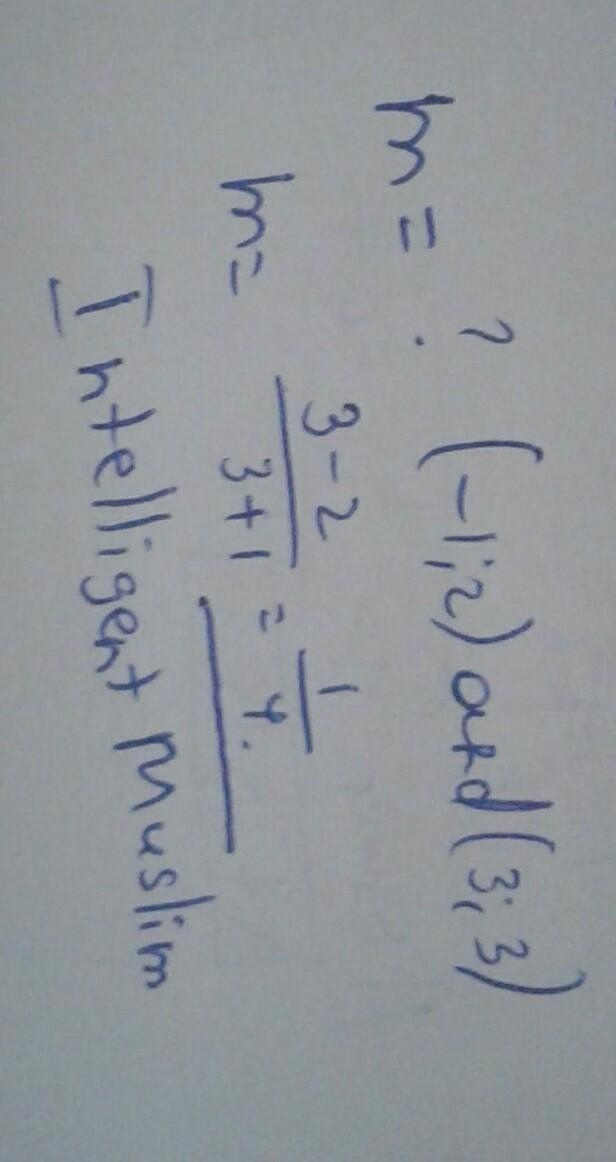 m = ? (-1;2) and (3;3)
m = \frac{3-2}{3+1} = \frac{1}{4}.
Intelligent Muslim